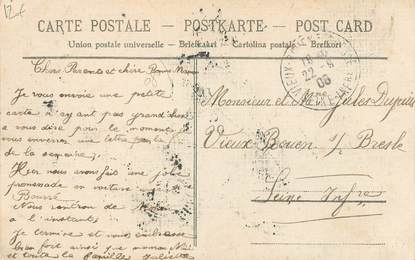 CARTE POSTALE — POSTKARTE — POST CARD
Union postale universelle — Briefkaart — Cartolina postale — Brefkort
Chers Parents et chère Bonne Maman
Je vous envoie une petite
carte n'ayant pas grand chose
a vous dire pour le moment
vous enverrai une lettre
de la semaine
Hier nous avons fait une jolie
promenade en voiture
Nous rentrons de
a l'instant
Je termine et vous embrasse
bien fort ainsi que maman
et toute la famille Juliette
Monsieur et Mme Jules
Vieux Rouen s/ Bresle
Seine Infre